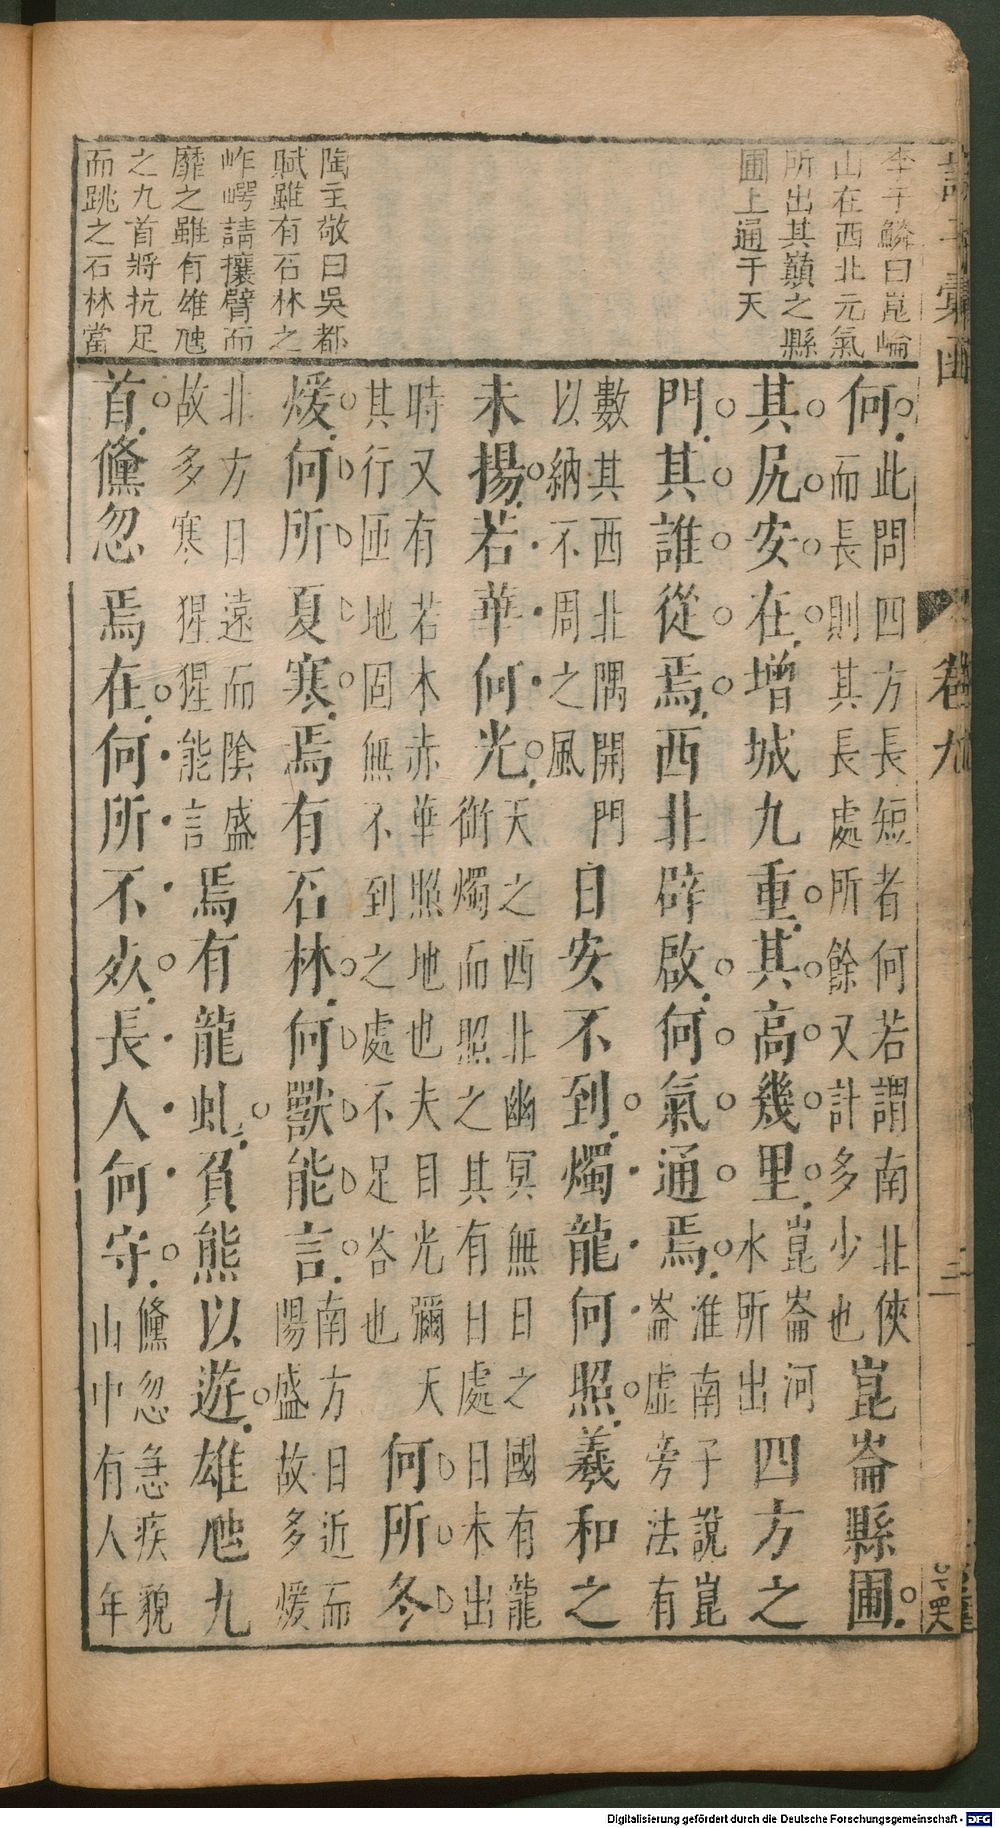 李于鱗曰崑崘
山在西北元氣
所出其巔之縣
圃上通于天
陶主敬曰吳都
賦雖有石林之
岞崿請攘臂而
靡之雖有雄虺
之九首將抗足
而跳之石林當
彙函 卷九
何此問四方長短者何若謂南北俠而長則其長處所餘又計多少也崑崙縣圃
其尻安在增城九重其高幾里崑崙河水所出四方之
門其誰從焉西北辟啟何氣通焉淮南子說崑崙虛旁法有
數其西北隅開門以納不周之風日安不到燭龍何照羲和之
未揚若華何光天之西北幽冥無日之國有龍銜燭而照之其有日處日未出
時又有若木赤華照地也夫目光彌天其行匝地固無不到之處不足答也何所冬
煖何所夏寒焉有石林何獸能言南方日近而陽盛故多煖
北方日遠而陰盛故多寒猩猩能言焉有龍虬負熊以遊雄虺九
首儵忽焉在何所不死長人何守儵忽急疾貌山中有人年
Digitalisierung gefördert durch die Deutsche Forschungsgemeinschaft - DFG